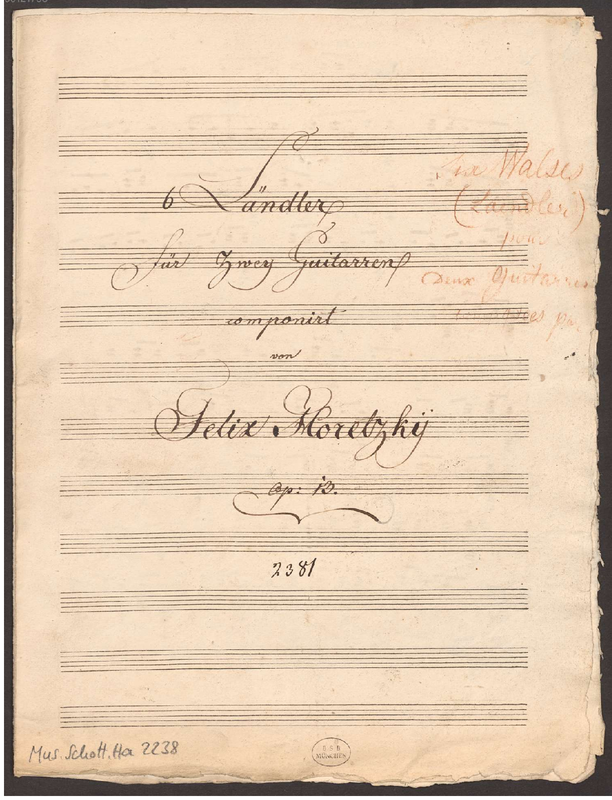 6 Ländler
für Zwey Guitarren
componirt
von
Felix Horetzkÿ
Op: 13.
2381
Six Walses
(Laendler)
pour
Deux Guitarres
Mus.Schott.Ha 2238
BSB
MÜNCHEN